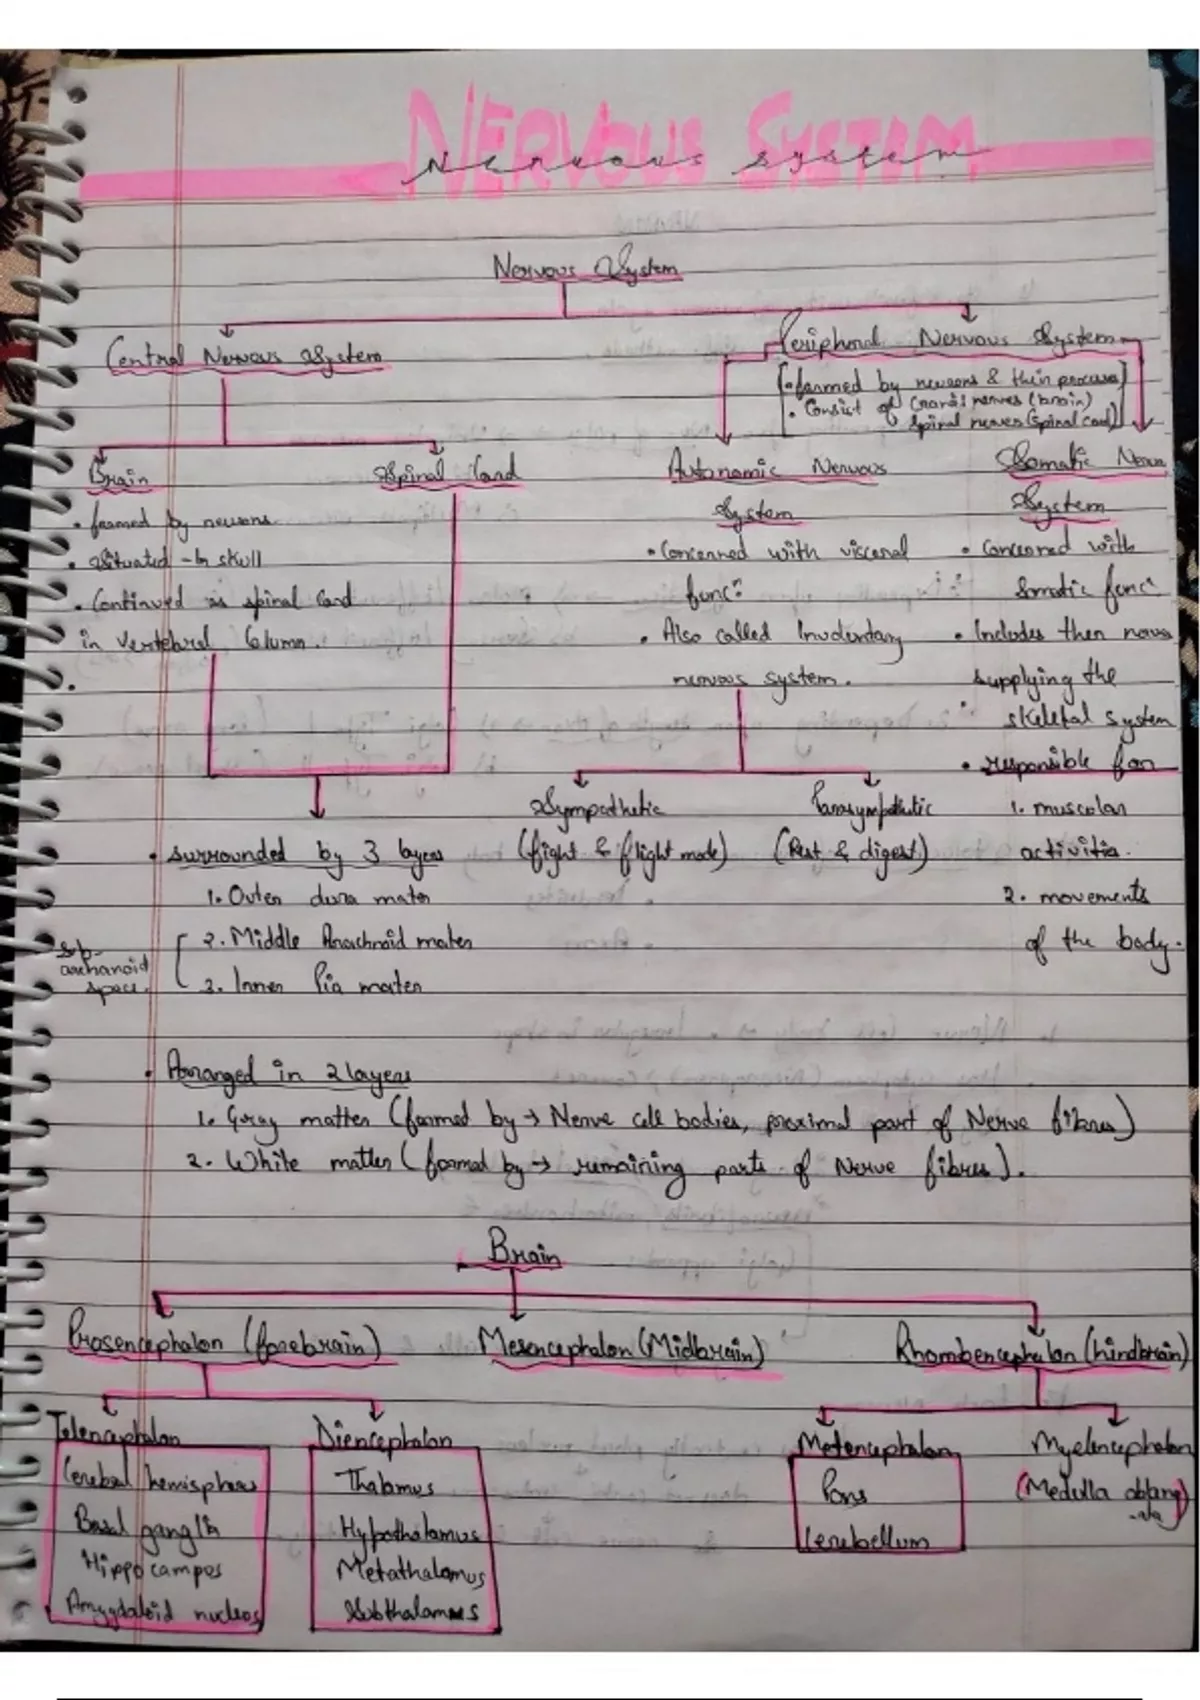 NERVOUS SYSTEM
Nervous system
Nervous System
Central Nervous System
Peripheral Nervous System
[• formed by neurons & their process]
• Consist of nerves (brain)
spinal nerves (spinal cord)]
Brain
• formed by neurons
• Situated in skull
• Continued as spinal cord
in vertebral Column.
Spinal Cord
Autonomic Nervous
System
• Concerned with visceral
func:
• Also called Involuntary
nervous system.
Somatic Nerve
System
• Concerned with
Somatic func
• Includes then
supplying the
skeletal system
• responsible for
1. muscular
activities.
2. movements
of the body.
Sympathetic
(fight & flight mode)
Parasympathetic
(Rest & digest)
• surrounded by 3 layers
1. Outer dura mater
2. Middle Arachnoid mater
3. Inner Pia mater
sb-
archanoid
space.
• Arranged in 2 layers
1. Gray matter (formed by → Nerve cell bodies, proximal part of Nerve fibres)
2. White matter (formed by → remaining parts of Nerve fibres).
Brain
Prosencephalon (forebrain)
Mesencephalon (Midbrain)
Rhombencephalon (hindbrain)
Telencephalon
Cerebral hemispheres
Basal ganglia
Hippocampos
Amygdaloid nucleos
Diencephalon
Thalamus
Hypothalamus
Metathalamus
Subthalamus
Metencephalon
Pons
Cerebellum
Myelencephalon
(Medulla oblong
-ata)